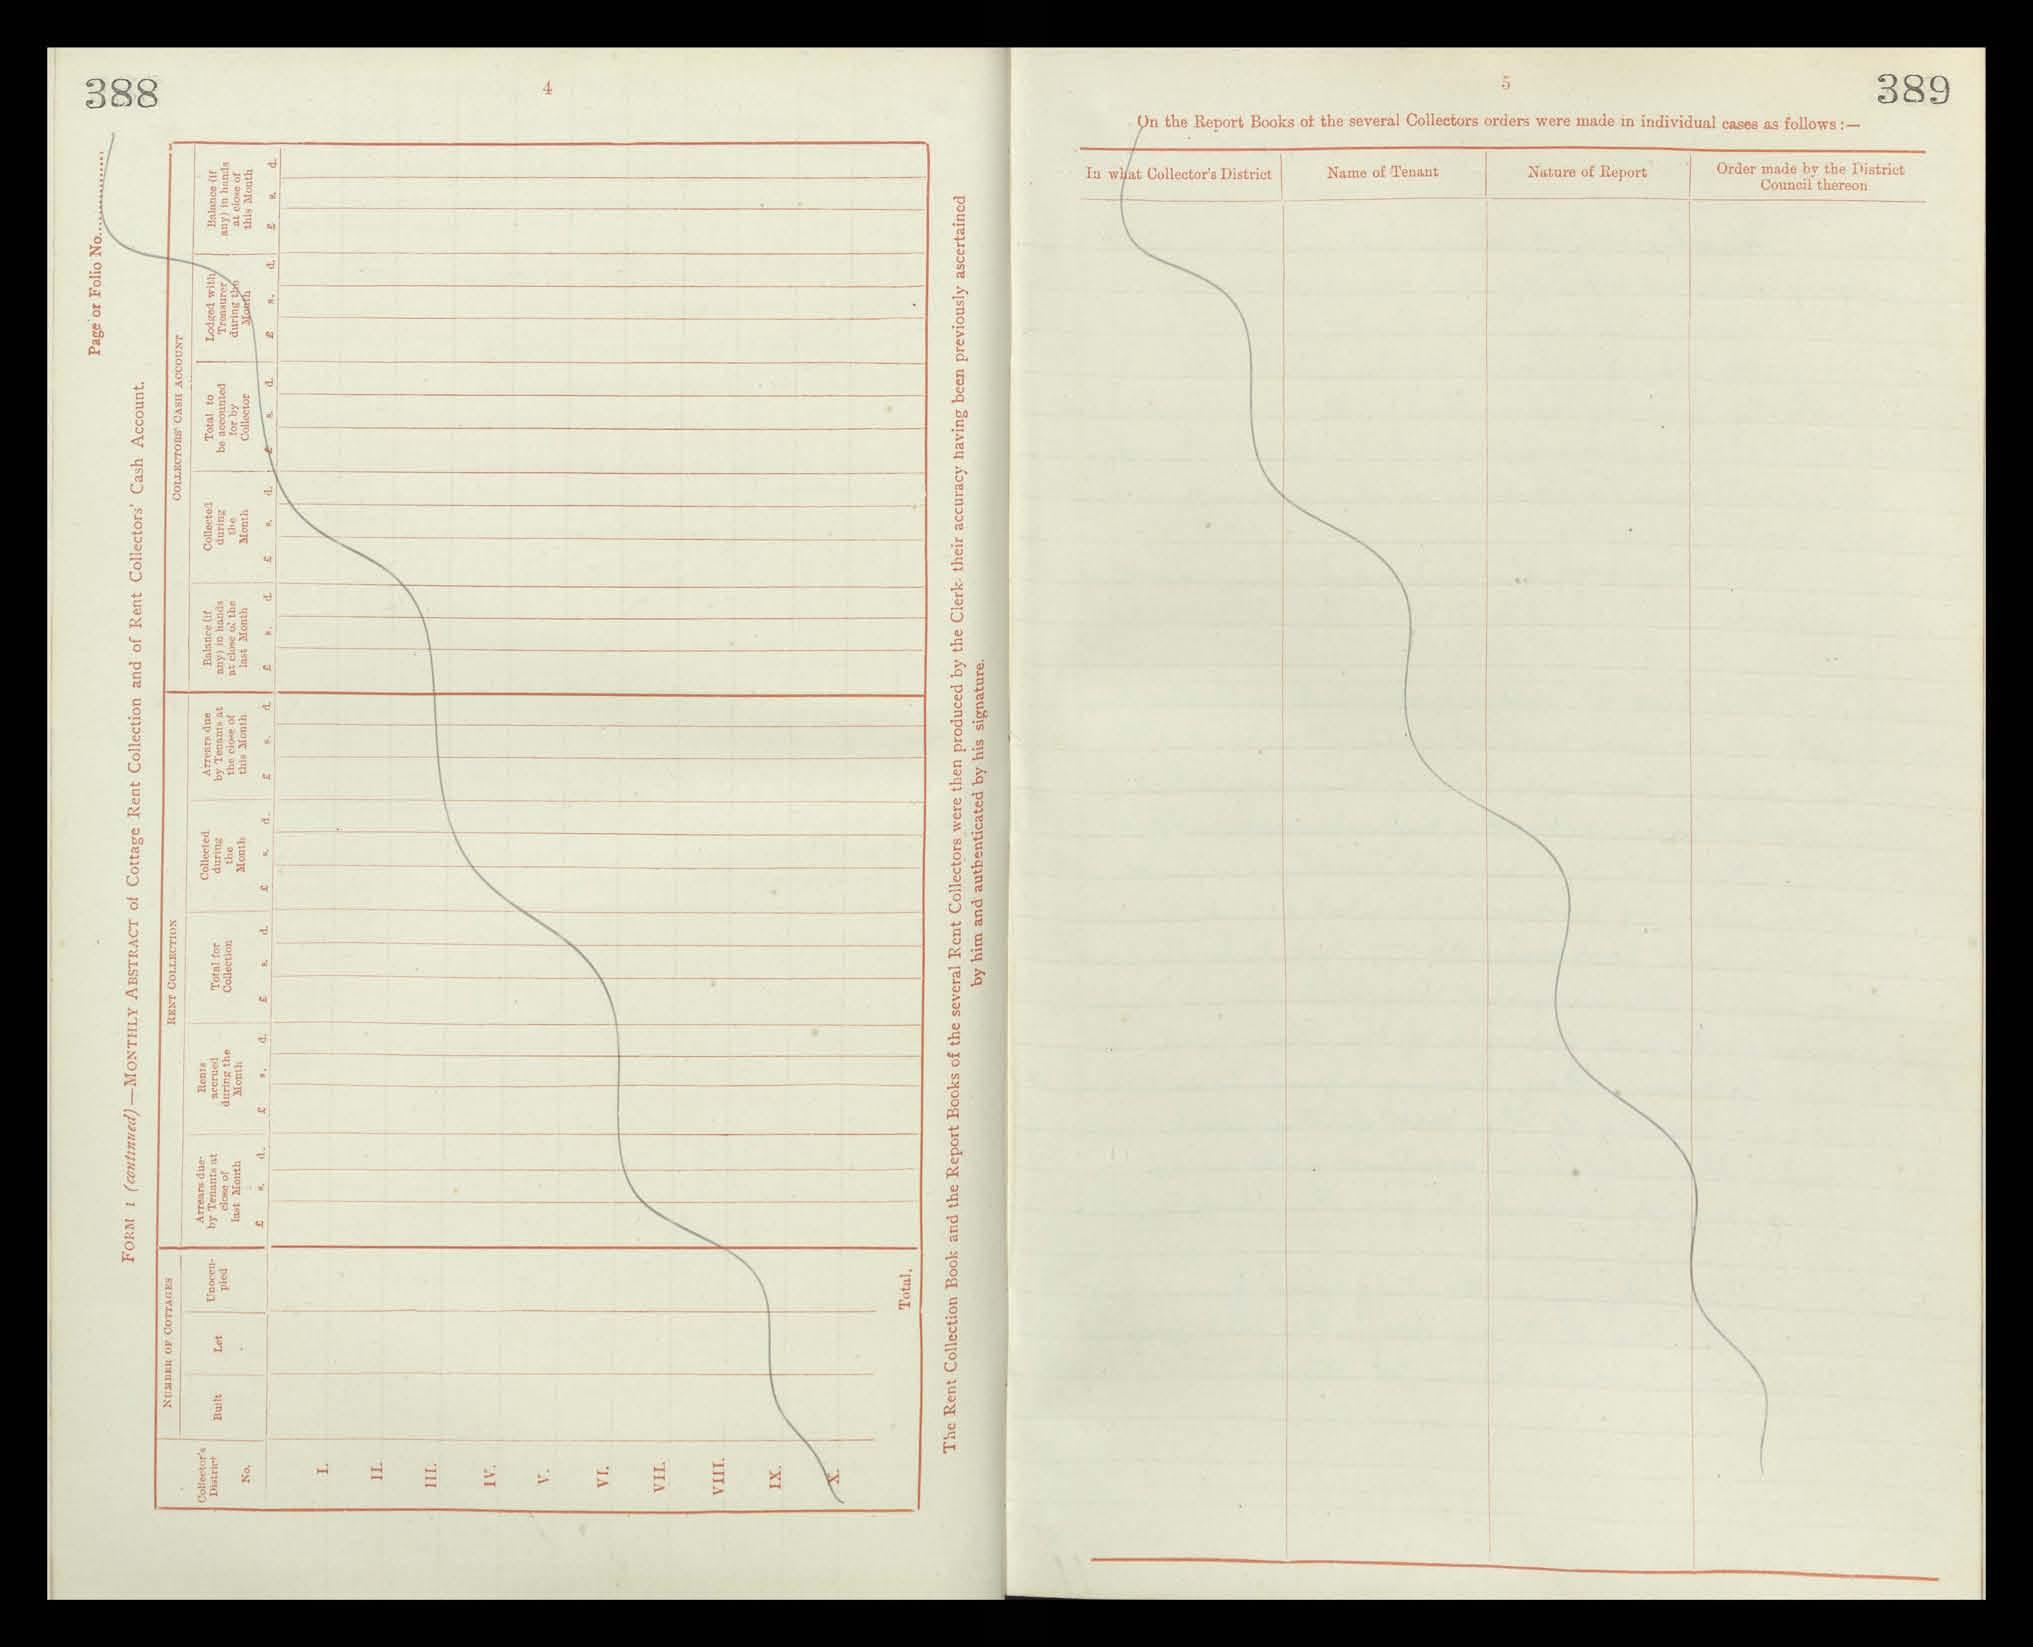 388
4
Page or Folio No..............
FORM 1 (continued)—MONTHLY ABSTRACT of Cottage Rent Collection and of Rent Collectors' Cash Account.
NUMBER OF COTTAGES
RENT COLLECTION
COLLECTORS' CASH ACCOUNT
Collector's
District
No.
Built
Let
Unoccu-
pied
Arrears due
by Tenants at
close of
last Month
£ s. d.
Rents
accrued
during the
Month
£ s. d.
Total for
Collection
£ s. d.
Collected
during
the
Month
£ s. d.
Arrears due
by Tenants at
the close of
this Month
£ s. d.
Balance (if
any) in hands
at close of the
last Month
£ s. d.
Collected
during
the
Month
£ s. d.
Total to
be accounted
for by
Collector
£ s. d.
Lodged with
Treasurer
during the
Month
£ s. d.
Balance (if
any) in hands
at close of
this Month
£ s. d.
I.
II.
III.
IV.
V.
VI.
VII.
VIII.
IX.
X.
Total.
The Rent Collection Book and the Report Books of the several Rent Collectors were then produced by the Clerk- their accuracy having been previously ascertained
by him and authenticated by his signature.
5
389
On the Report Books of the several Collectors orders were made in individual cases as follows:—
In what Collector's District
Name of Tenant
Nature of Report
Order made by the District
Council thereon